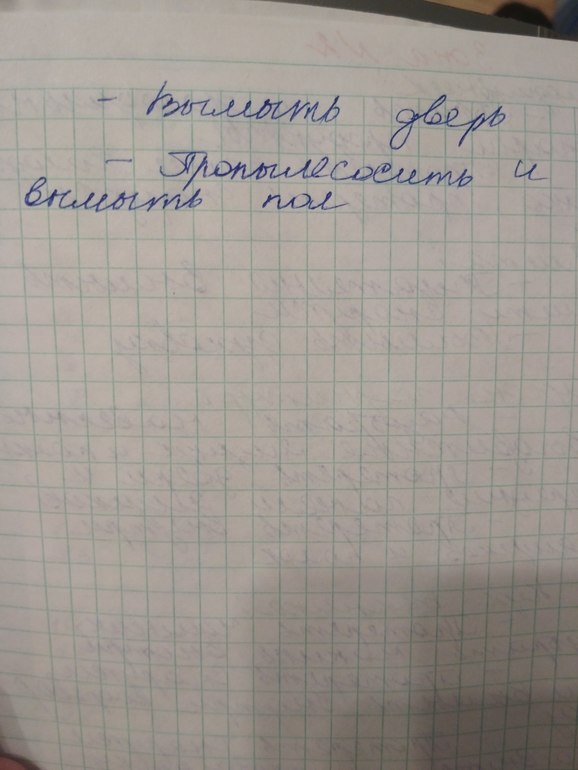 - Вымыть дверь
- Пропылесосить и
вымыть пол